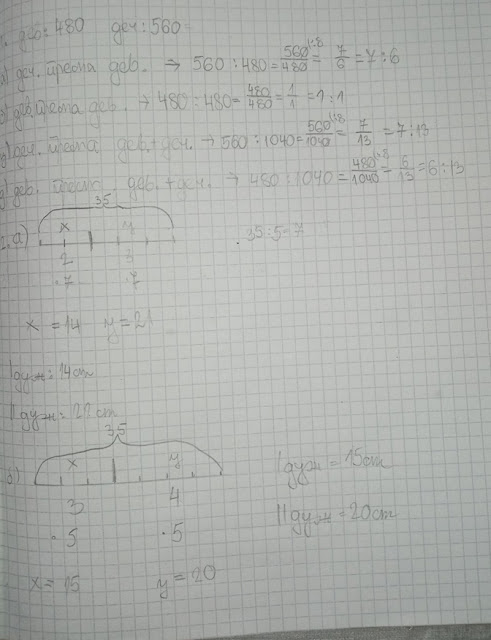 1. дев: 480 деч: 560
а) деч. према дев. → 560 : 480 = 560/480 = 7/6 = 7 : 6
дев. према дев. → 480 : 480 = 480/480 = 1/1 = 1 : 1
деч. према дев. + деч. → 560 : 1040 = 560/1040 = 7/13 = 7 : 13
дев. према дев. + деч. → 480 : 1040 = 480/1040 = 6/13 = 6 : 13
35
а) x y 35 : 5 = 7
2 3
·7 ·7
x = 14 y = 21
I дуж: 14cm
II дуж = 22cm
35
x y I дуж = 15cm
3 4 II дуж = 20cm
·5 ·5
x = 15 y = 20